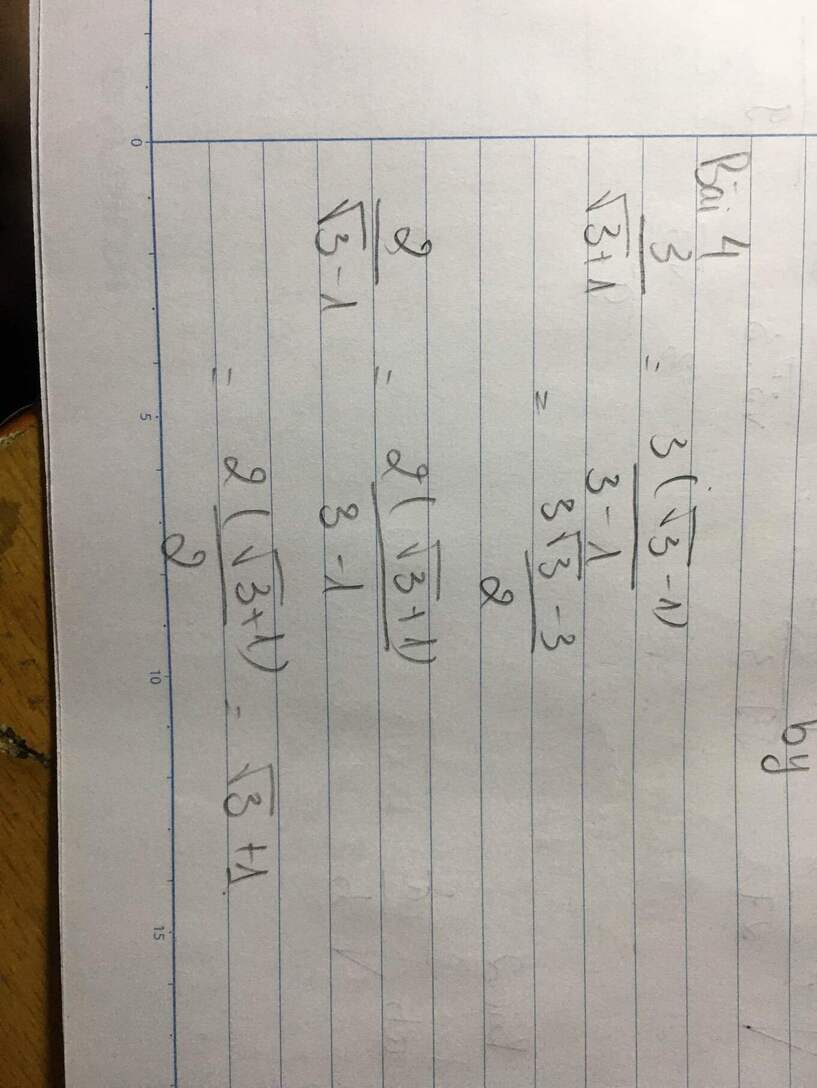 by
Bài 4
3/(√3+1) = 3(√3-1)/(3-1)
= (3√3-3)/2
2/(√3-1) = 2(√3+1)/(3-1)
= 2(√3+1)/2 = √3+1
0 5 10 15